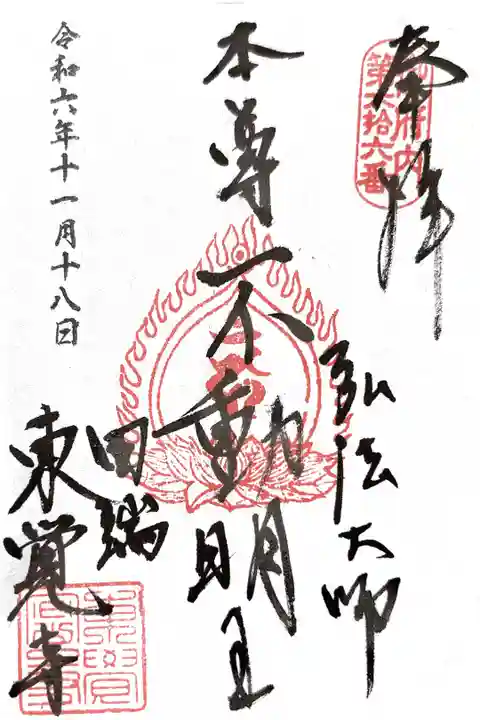 奉拝
御府内
第六拾六番
弘法大師
本尊不動明王
田端
東覺寺
令和六年十一月十八日